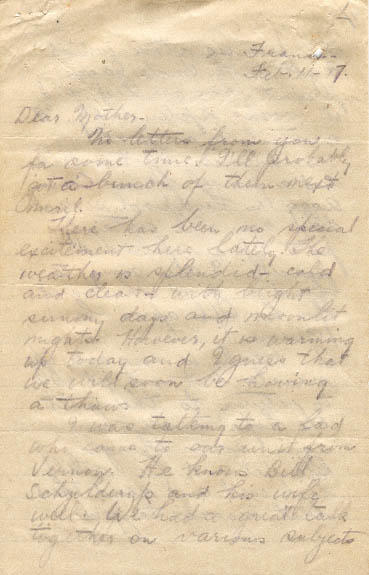 France
Feb. 11 - 17.
Dear Mother -
No letters from you
for some time. I'll probably
get a bunch of them next
mail.
There has been no special
excitement here lately. The
weather is splendid - cold
and clear - with bright
sunny days and moonlit
nights. However, it is warming
up today and I guess that
we will soon be having
a thaw.
I was talking to a lad
who came to our unit from
Vernon. He knows Bill
and his wife
well. We had a great talk
together on various subjects